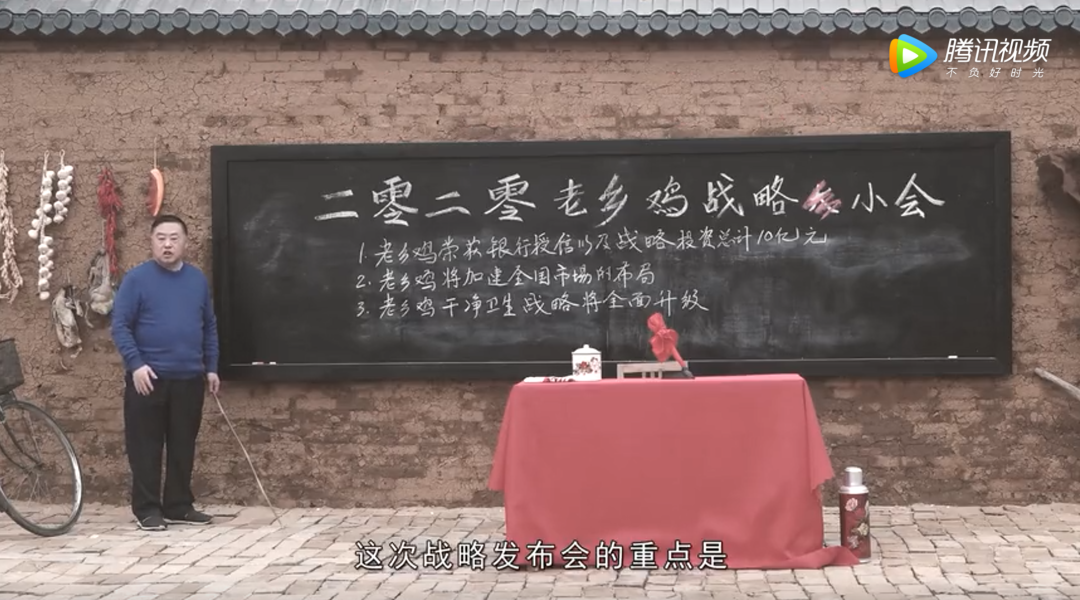 腾讯视频
不负好时光
二零二零老乡鸡战略小会
1. 老乡鸡荣获银行授信以及战略投资总计10亿元
2. 老乡鸡将加速全国市场的布局
3. 老乡鸡干净卫生战略将全面升级
这次战略发布会的重点是